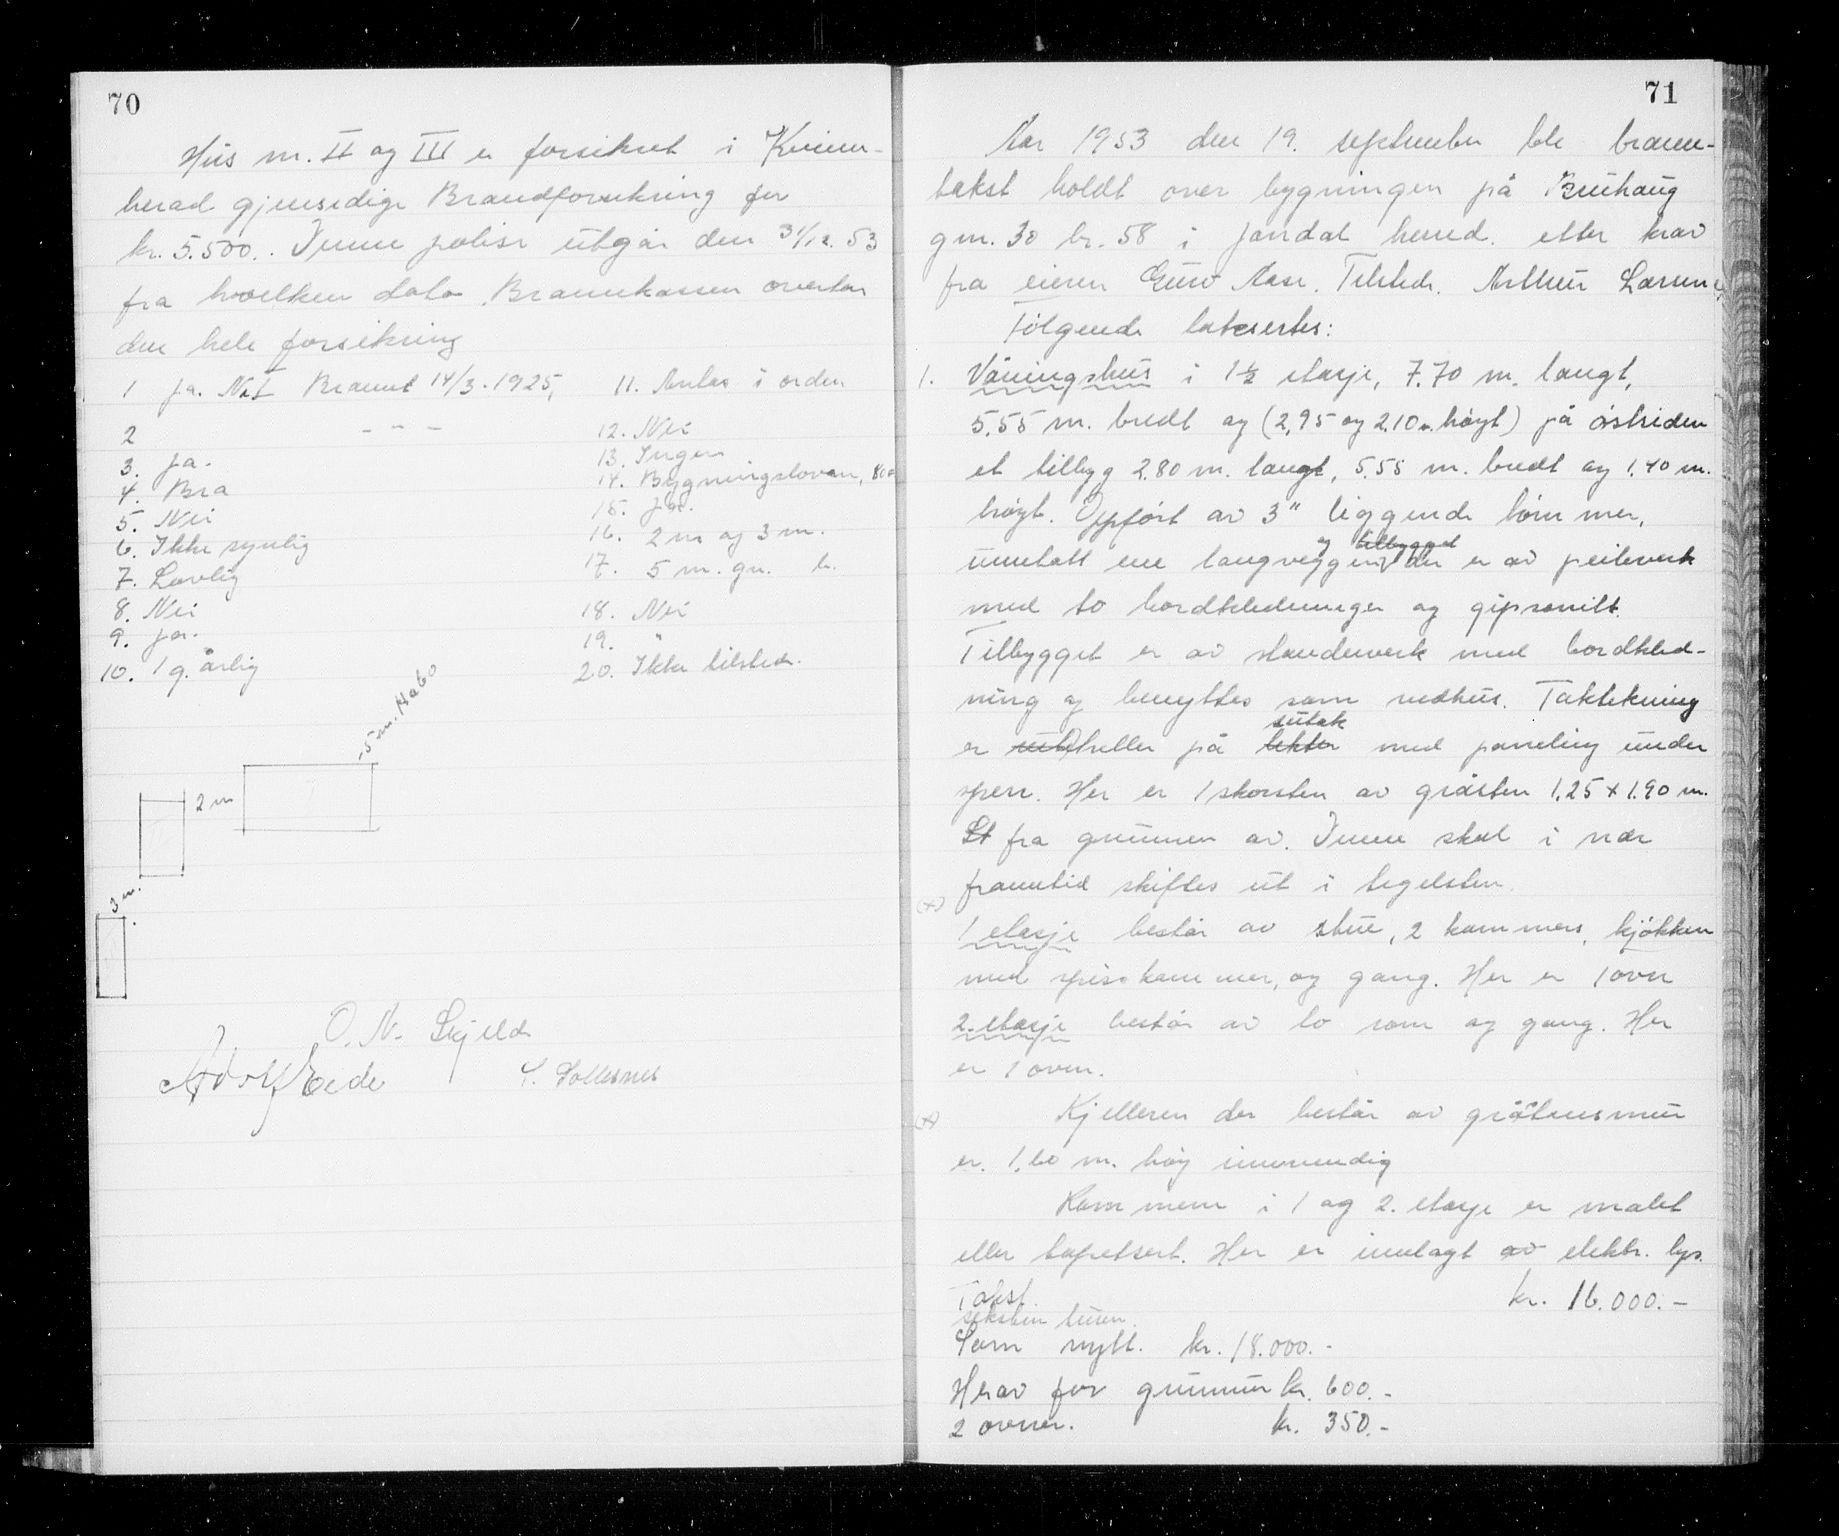 70
Hus nr. II og III er forsikret i Kvinn-
herad gjensidige Brandforsikring for
kr. 5.500.. Denne polise utgår den 31/12. 53
fra hvilken dato Brannkassen overtar
den hele forsikring
1 Ja. No I Brannt 14/3.1925,
2 - " -
3. Ja.
4. Bra
5. Nei
6. Ikke synlig
7. Lovlig
8. Nei
9. Ja.
10. 1 g. årlig
11. Antas i orden
12. Nei
13. Ingen
14. Bygningsloven, 800
15. Ja.
16. 2 m og 3 m.
17. 5 m. gn. b.
18. Nei
19. "
20. Ikke tilstede.
5 m. Habo
2 m
3 m.
O. N. Skjelde
Adolf Eide
S. Sollesnes
71
Aar 1953 den 19. september ble brann-
takst holdt over bygningen på Bruhaug
gnr. 30 br. 58 i Jondal herred. etter krav
fra eieren Guro Aase. Tilstede. Arthur Larsen
Følgende taksertes:
1. Våningshus i 1½ etasje, 7.70 m. langt,
5.55 m. bredt og (2,95 og 2.10 m. høyt) på østsiden
et tilbyg 2.80 m. langt, 5.55 m. bredt og 1.40 m.
høyt. Oppført av 3" liggende tømmer,
unntatt ene langveggen og tilbygget der er av peileverk
med to bordkledninger og gipsonitt.
Tilbygget er av standerverk med bordkled-
ning og benyttes som vedhus. Taktekning
er heller på lekter sutak med paneling under
sperr. Her er 1 skorsten av gråsten 1.25 x 1.90 m.
St fra grunnen av. Denne skal i nær
framtid skiftes ut i teglsten.
(x)
1 etasje består av stue, 2 kammers, kjøkken
med spisekammer, og gang. Her er 1 ovn
2. etasje består av to rom og gang. Her
er 1 oven.
(x) Kjelleren der består av gråstensmur
er. 1.60 m. høy innvendig
Rommene i 1 og 2. etasje er malet
eller tapetsert. Her er innlagt av elektr. lys.
Takst. kr. 16.000.-
seksten tusen.
Som nytt. kr. 18.000.-
Herav for grunnmur kr. 600.-
2 ovner. kr. 350.-